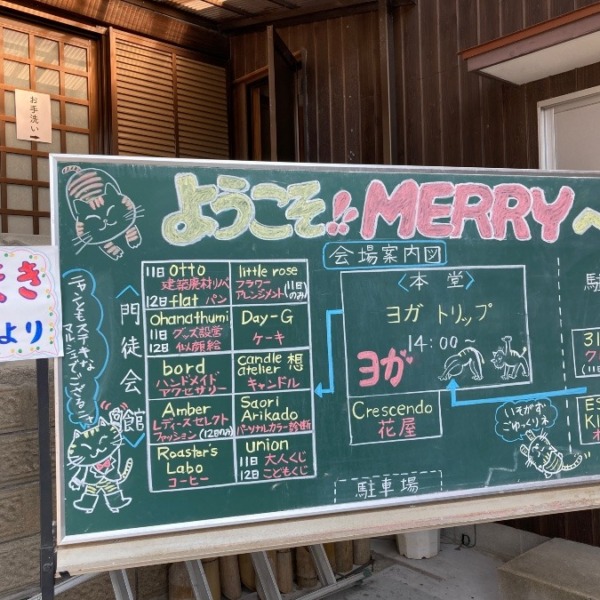 お手洗い→
ようこそ!! MERRYへ
会場案内図
き
より
ニャンともステキな
マルシェでござるニャ
〈門徒会館〉
11日 otto
建築廃材リペ
12日 flat パン
little rose
フラワー
アレンジメント(11日のみ)
ohanathumi
11日 グッズ設営
12日 似顔絵
Day-G
ケーキ
bord
ハンドメイド
アクセサリー
candle 想
atelier
キャンドル
Amber
レディースセレクト
ファッション (12日のみ)
Saori
Arikado
パーソナルカラー診断
Roasters
Labo
コーヒー
union
11日 大人くじ
12日 こどもくじ
〈本堂〉
ヨガ トリップ
14:00〜
ヨガ
Crescendo
花屋
いそがず
ごゆっくりネ
駐車場
駐
31
(11日
ES
KI